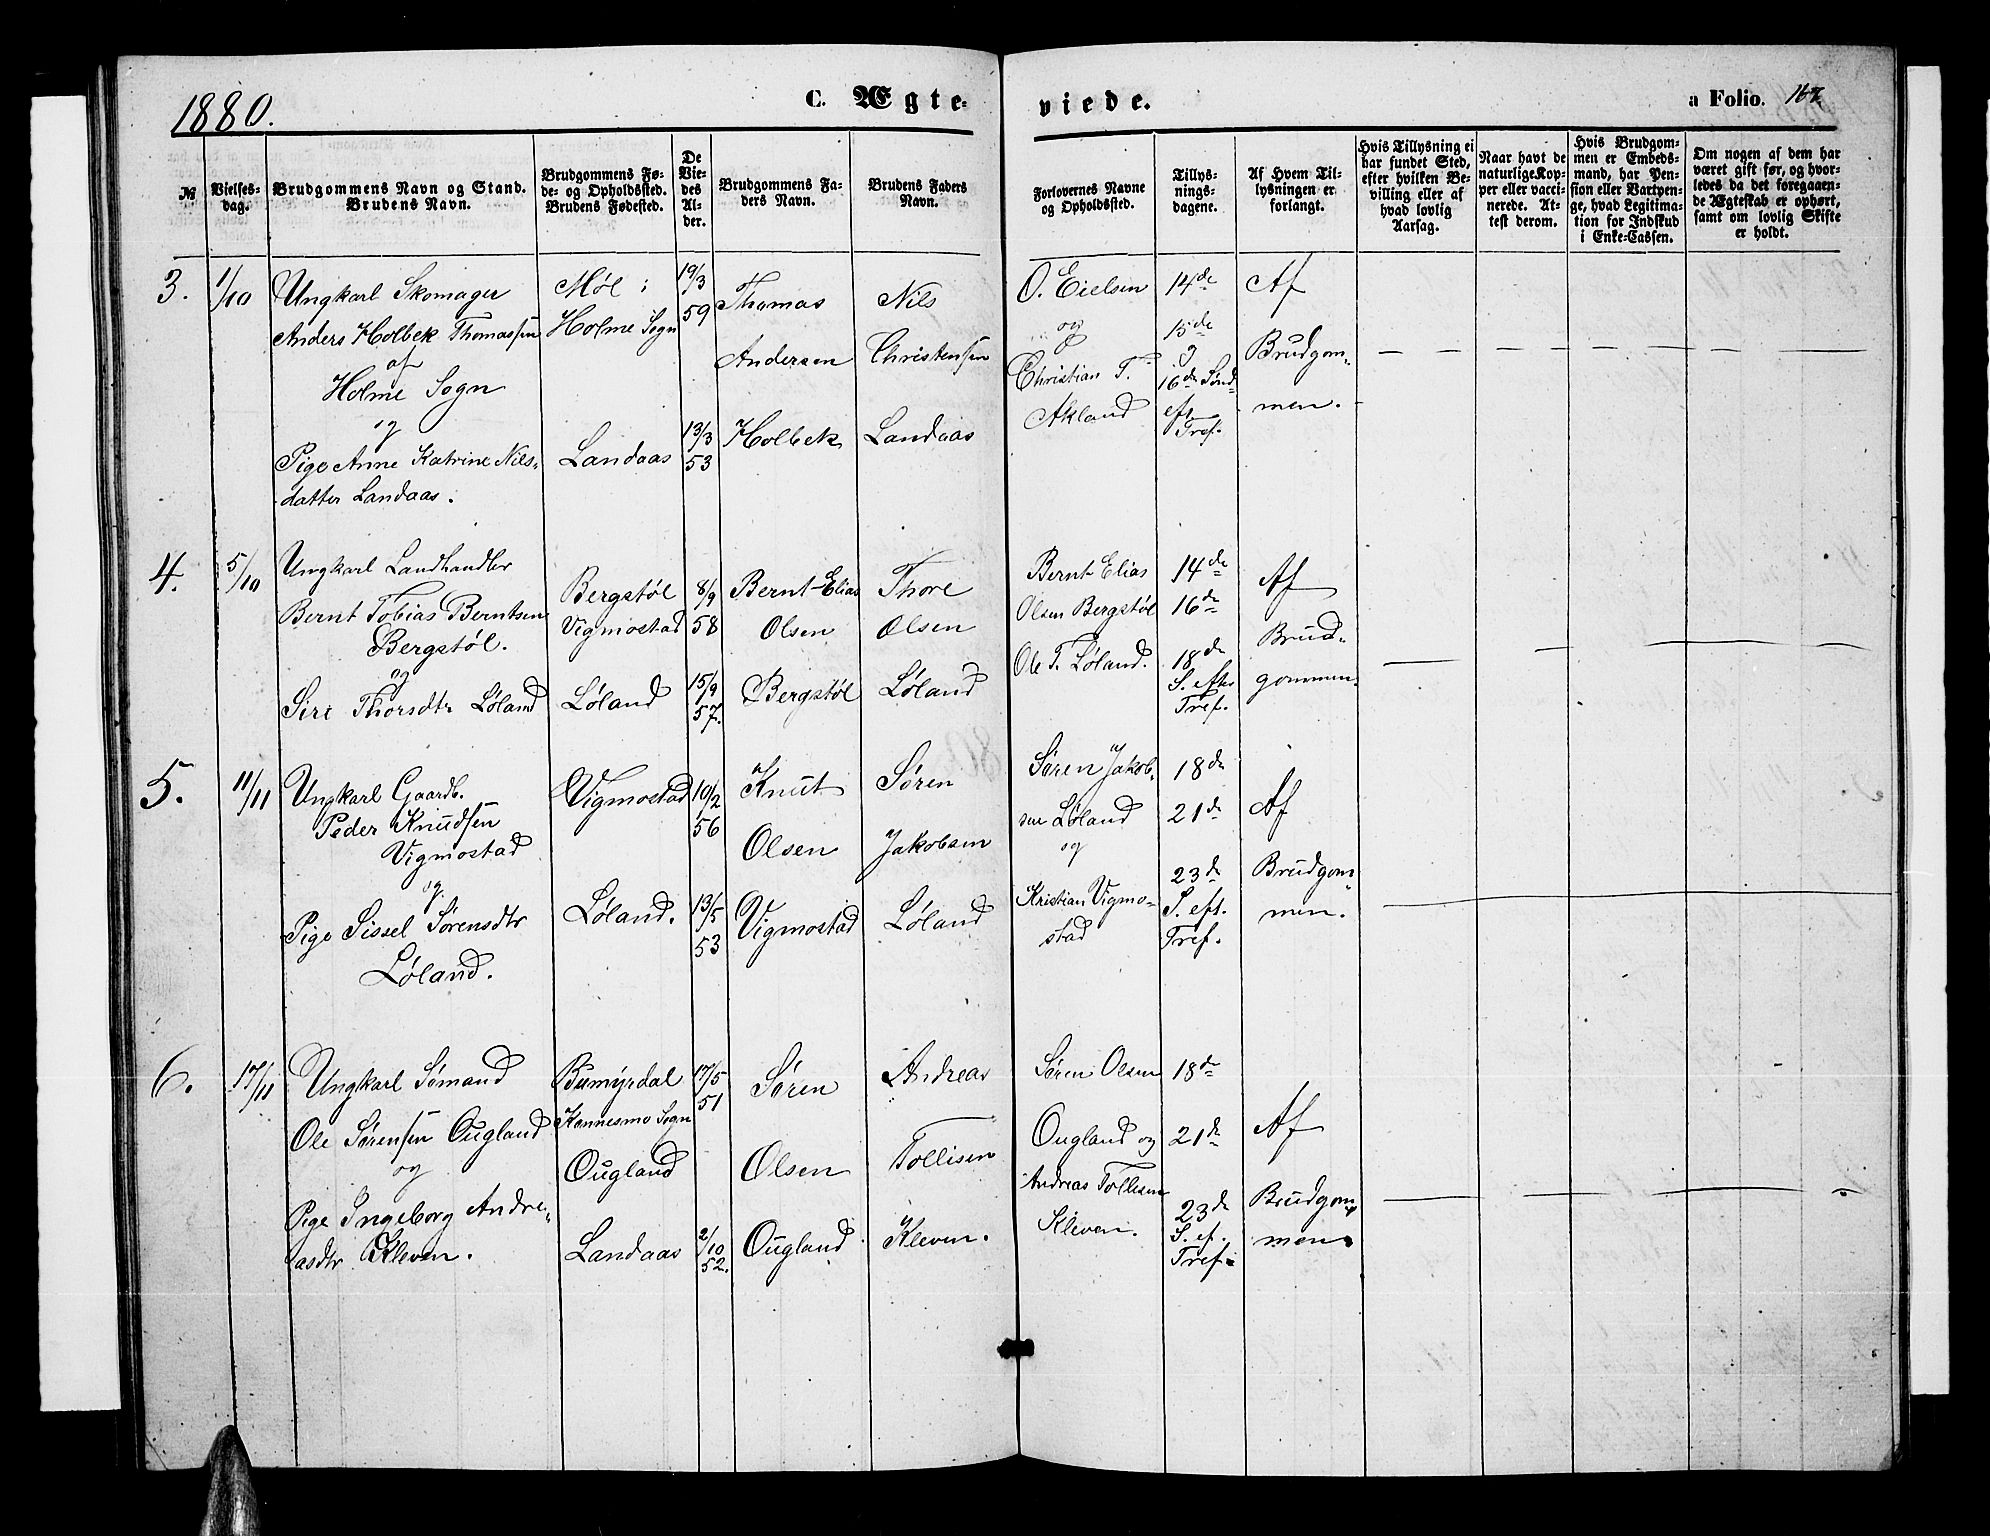 1880.
C. Ægte-
viede.
a Folio. 167
№
Vielses-
dag.
Brudgommens Navn og Stand.
Brudens Navn.
Brudgommens Fø-
de- og Opholdssted.
Brudens Fødested.
De
Vie-
des
Al-
der.
Brudgommens Fa-
ders Navn.
Brudens Faders
Navn.
Forlovernes Navne
og Opholdssted.
Tillys-
nings-
dagene.
Af Hvem Til-
lysningen er
forlangt.
Hvis Tillysning ei
har fundet Sted,
efter hvilken Be-
villing eller af
hvad lovlig
Aarsag.
Naar havt de
naturlige Kop-
per eller vacci-
nerede. At-
test derom.
Hvis Brudgom-
men er Embeds-
mand, har Pen-
sion eller Vartpen-
ge, hvad Legitima-
tion for Indskud
i Enke-Cassen.
Om nogen af dem har
været gift før, og hvor-
ledes da det foregaaen-
de Ægteskab er ophørt,
samt om lovlig Skifte
er holdt.
3.
1/10
Ungkarl Skomager
Anders Holbek Thomassen
af
Holme Sogn
og
Pige Anne Katrine Nils-
datter Landaas.
Møl:
Holme Sogn
Landaas
19/3
59
13/3
53
Thomas
Andersen
Holbek
Nils
Christensen
Landaas
O. Eielsen
og
Christian T.
Akland
14de
15de
og
16de Sønd
eft.
Tref.
Af
Brudgom-
men.
4.
5/10
Ungkarl Landhandler
Bernt Tobias Berntsen
Bergstøl.
og
Siri Thorsdtr Løland
Bergstøl
Vigmostad
Løland
8/9
58
15/9
57.
Bernt Elias
Olsen
Bergstøl
Thore
Olsen
Løland
Bernt Elias
Olsen Bergstøl
Ole T. Løland.
14de
16de
18de
S. efter
Tref.
Af
Brud-
gommen.
5.
11/11
Ungkarl Gaardb.
Peder Knudsen
Vigmostad
og
Pige Sissel Sørensdtr
Løland.
Vigmostad
Løland.
10/2
56
13/5
53
Knut
Olsen
Vigmostad
Søren
Jakobsen
Løland
Søren Jakob-
sen Løland
og
Kristian Vigmo-
stad
18de
21de
23de
S. eft.
Tref.
Af
Brudgom-
men.
6.
17/11
Ungkarl Sømand
Ole Sørensen Ougland
og
Pige Ingeborg Andre-
asdtr Kleven.
Bumyrdal
Konnesmo Sogn
Ougland
Landaas
17/5
51
2/10
52.
Søren
Olsen
Ougland
Andreas
Tollisen
Kleven.
Søren Olsen
Ougland og
Andreas Tollisen
Kleven.
18de
21de
23de
S. ef.
Tref.
Af
Brudgom-
men.